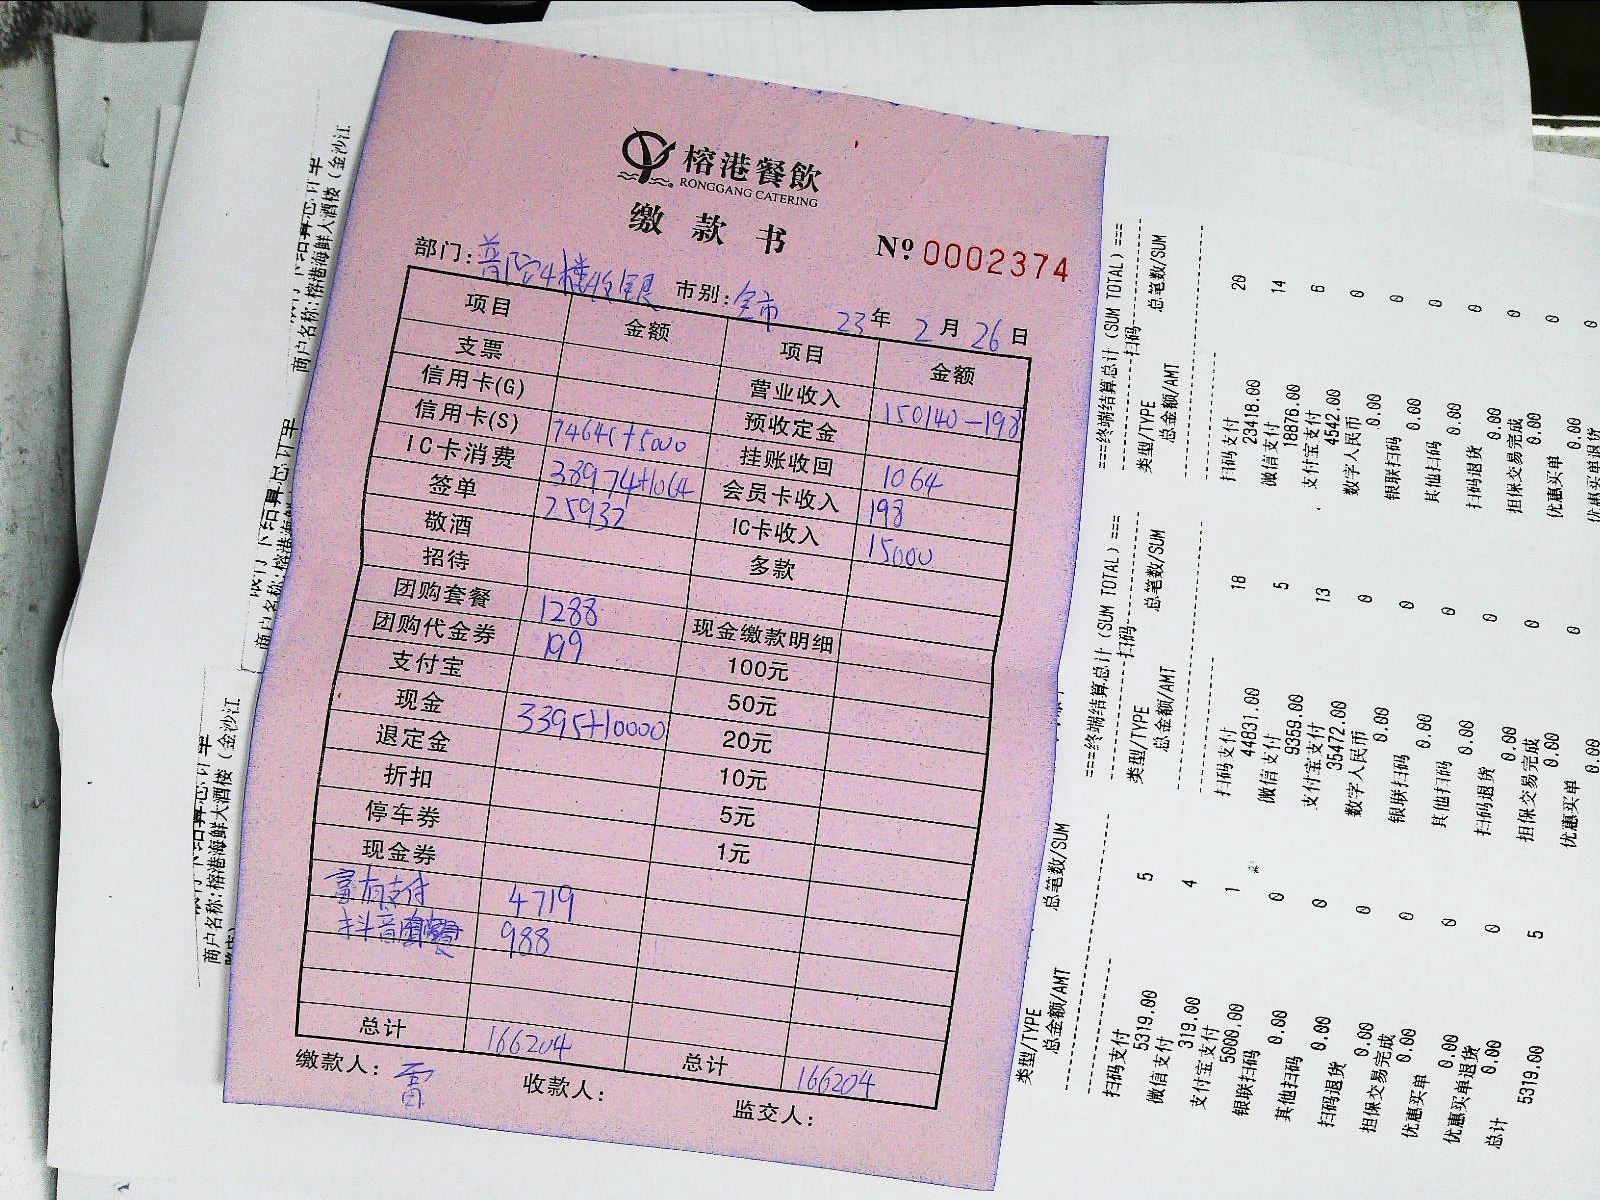 榕港餐飲
RONGGANG CATERING
缴款书
№ 0002374
部门: 普陀4楼收银 市别: 全市 23年 2月 26日
项目 金额 项目 金额
支票 营业收入 150140-198
信用卡(G) 预收定金
信用卡(S) 74645+5000 挂账收回 1064
IC卡消费 38974+1064 会员卡收入 198
签单 25932 IC卡收入 15000
敬酒 多款
招待
团购套餐 1288 现金缴款明细
团购代金券 199 100元
支付宝 50元
现金 3395+10000 20元
退定金 10元
折扣 5元
停车券 1元
现金券
富有支付 4719
抖音 988
总计 166204 总计 166204
缴款人: 雷 收款人: 监交人:
商户名称:榕港海鲜大酒楼(金沙江
商户名称:榕港海鲜
商户名称:榕港海鲜大酒楼(金沙江
===终端结算总计(SUM TOTAL)===
扫码
类型/TYPE 总笔数/SUM
总金额/AMT
扫码支付 20
23418.00
微信支付 14
18876.00
支付宝支付 6
4542.00
数字人民币 0
0.00
银联扫码 0
0.00
其他扫码 0
0.00
扫码退货 0
0.00
担保交易完成 0
0.00
优惠买单 0
0.00
优惠买单退货 0
===终端结算总计(SUM TOTAL)===
扫码
类型/TYPE 总笔数/SUM
总金额/AMT
扫码支付 18
44831.00
微信支付 5
9359.00
支付宝支付 13
35472.00
数字人民币 0
0.00
银联扫码 0
0.00
其他扫码 0
0.00
扫码退货 0
0.00
担保交易完成 0
0.00
优惠买单 0
0.00
类型/TYPE 总笔数/SUM
总金额/AMT
扫码支付 5
5319.00
微信支付 4
319.00
支付宝支付 1
5000.00
银联扫码 0
0.00
其他扫码 0
0.00
扫码退货 0
0.00
担保交易完成 0
0.00
优惠买单 0
0.00
优惠买单退货 0
0.00
总计 5
5319.00